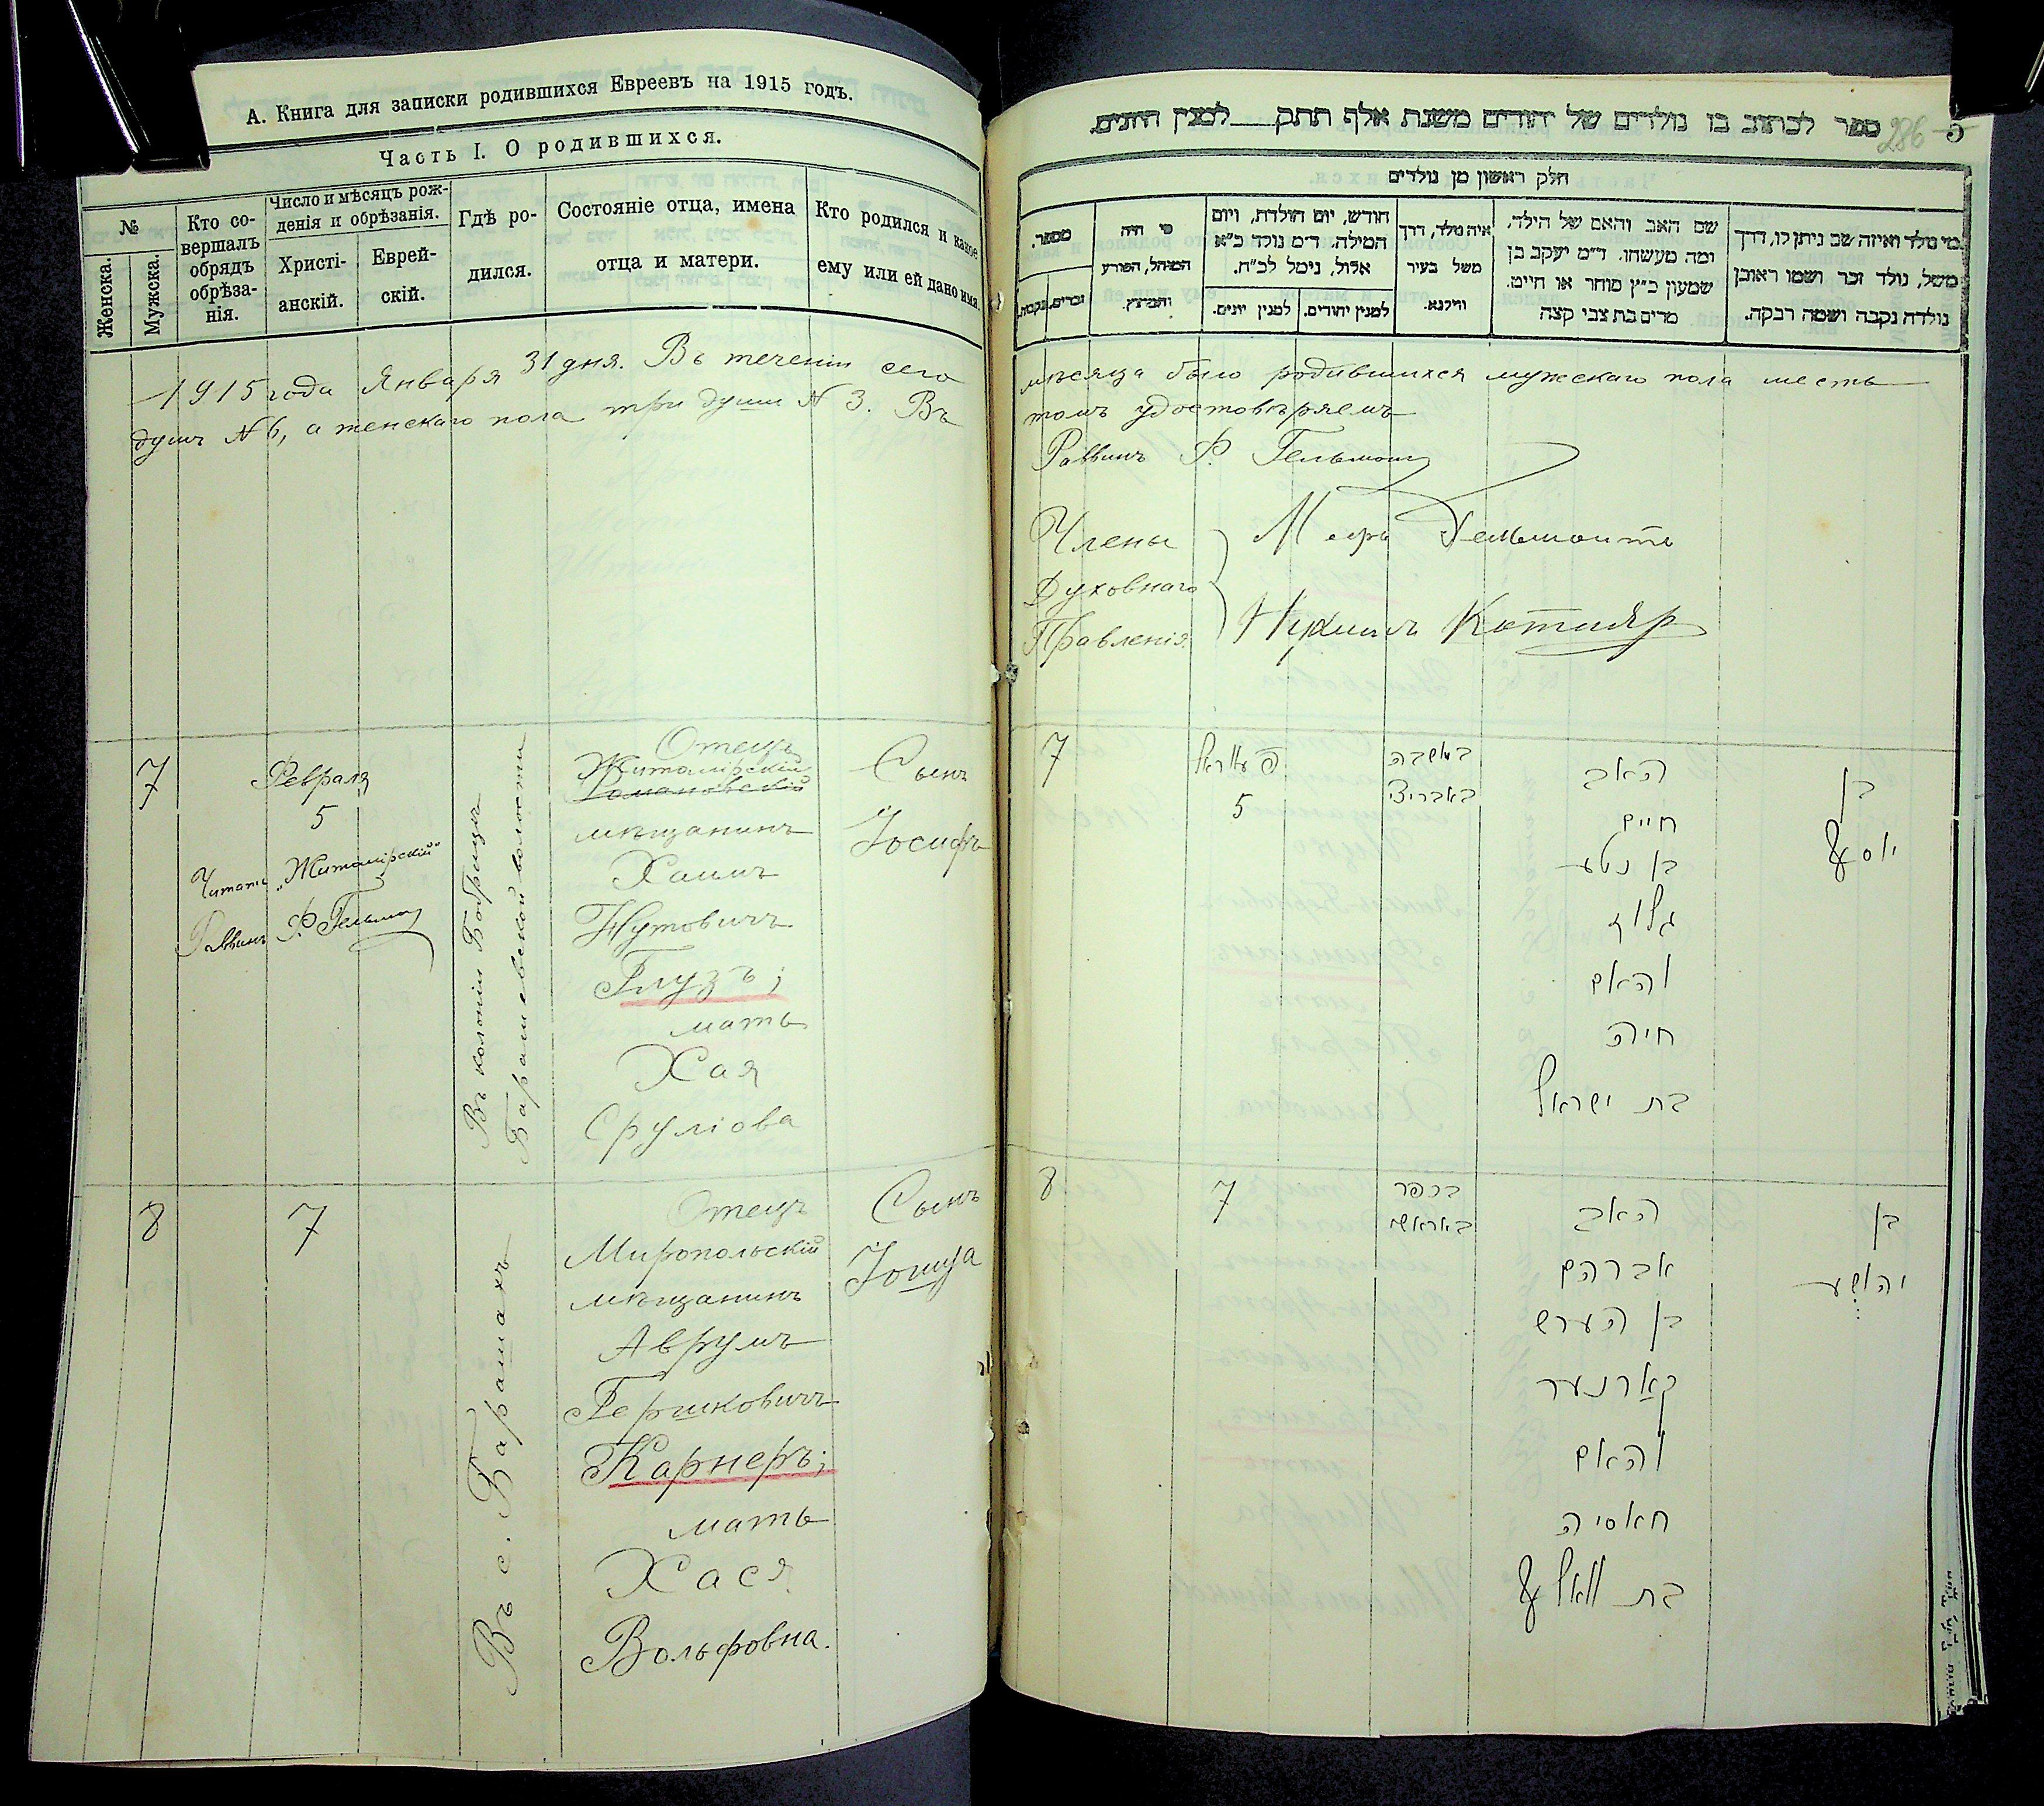 А. Книга для записки родившихся Евреевъ на 1915 годъ.
Часть I. О родившихся.
№
Женска.
Мужска.
Кто со-
вершалъ
обрядъ
обрѣза-
нія.
Число и мѣсяцъ рож-
денія и обрѣзанія.
Христі-
анскій.
Еврей-
скій.
Гдѣ ро-
дился.
Состояніе отца, имена
отца и матери.
Кто родился и какое
ему или ей дано имя.
1915 года Января 31 дня. Въ теченіи сего
душъ №6, а женскаго пола три души № 3. Въ
7
Февраля
5
Читать „Житомірскій“
Раввинъ Ф. Гельмонт
Въ колоніи Бобрицѣ
Барашевской волости
Отецъ
Житомірскій
Романовскій
мѣщанинъ
Хаимъ
Нутовичъ
Глузъ;
мать
Хая
Сруліова
Сынъ
Іосифъ
8
7
Въ с. Барашахъ
Отецъ
Миропольскій
мѣщанинъ
Аврумъ
Гершковичъ
Карнеръ;
мать
Хася
Вольфовна.
Сынъ
Іошуа
ספר לכתוב בו נולדים של יהודים משנת אלף תתק למנין היונים.
286
5
חלק ראשון מן נולדים
מספר.
זכרים.
נקבות.
מי היה
המוהל, הפורע
והמוצץ.
חודש, יום הולדת, ויום
המילה. ד״מ נולד כ״א
אלול, נימל לכ״ח.
למנין יונים.
למנין יהודים.
איה נולד, דרך
משל בעיר
ווילנא.
שם האב והאם של הילד,
ומה מעשהו. ד״מ יעקב בן
שמעון כ״ץ סוחר או חייט.
מרים בת צבי קצה
מי נולד ואיזה שב ניתן לו, דרך
משל, נולד זכר ושמו ראובן
נולדה נקבה ושמה רבקה.
мѣсяца было родившихся мужскаго пола шесть
томъ удостовѣряемъ
Раввинъ Ф. Гельмонт
Члены
Духовнаго
Правленія
Меръ Гельмонтъ
Нухимъ Котляр
7
5
במאשבה
באבריצי
האב
חיים
בן נטע
גלוז
והאם
חיה
בת ישראל
בן
יוסף
8
7
בכפר
באראשי
האב
אברהם
בן הערש
קארנער
והאם
חאסיה
בת וואלף
בן
יהושע